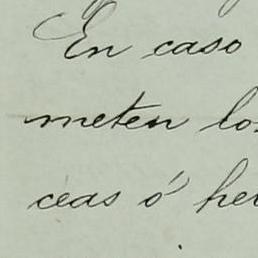 En caso
meten los
ceas ó he